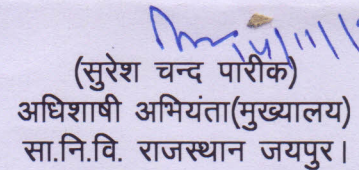 14/11/1
(सुरेश चन्द पारीक)
अधिशाषी अभियंता(मुख्यालय)
सा.नि.वि. राजस्थान जयपुर।